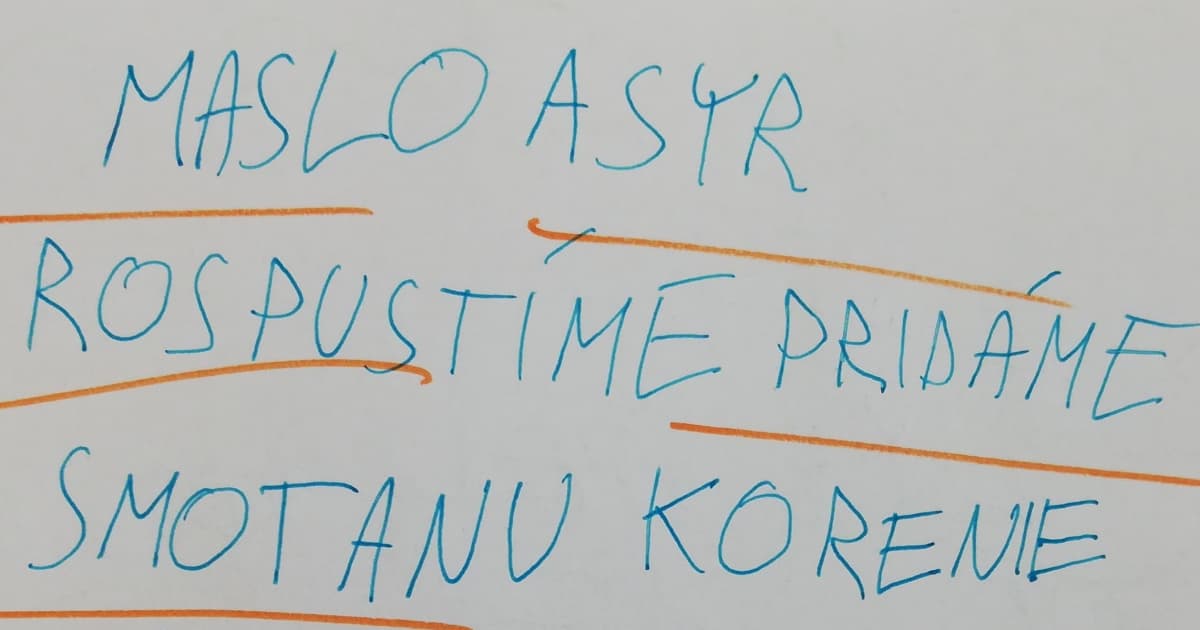 MASLO A SYR
ROSPUSTÍME PRIDÁME
SMOTANU KORENIE